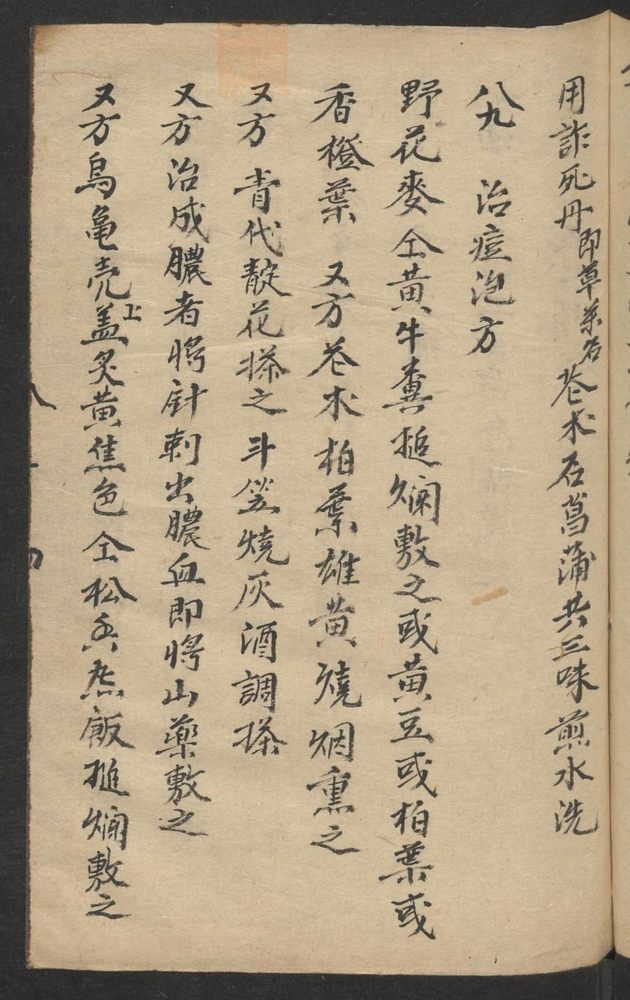 用詐死丹即草菓名苍术石菖蒲共三味煎水洗
八九 治痘泡方
野花麥仝黄牛糞搥爛敷之或黄豆或柏葉或
香橙葉 又方苍术柏葉雄黄燒烟熏之
又方 青代靛花搽之斗笠燒灰酒調搽
又方治成膿者将針刺出膿血即将山藥敷之
又方烏亀壳上盖炙黄焦色仝松香煮飯搥爛敷之